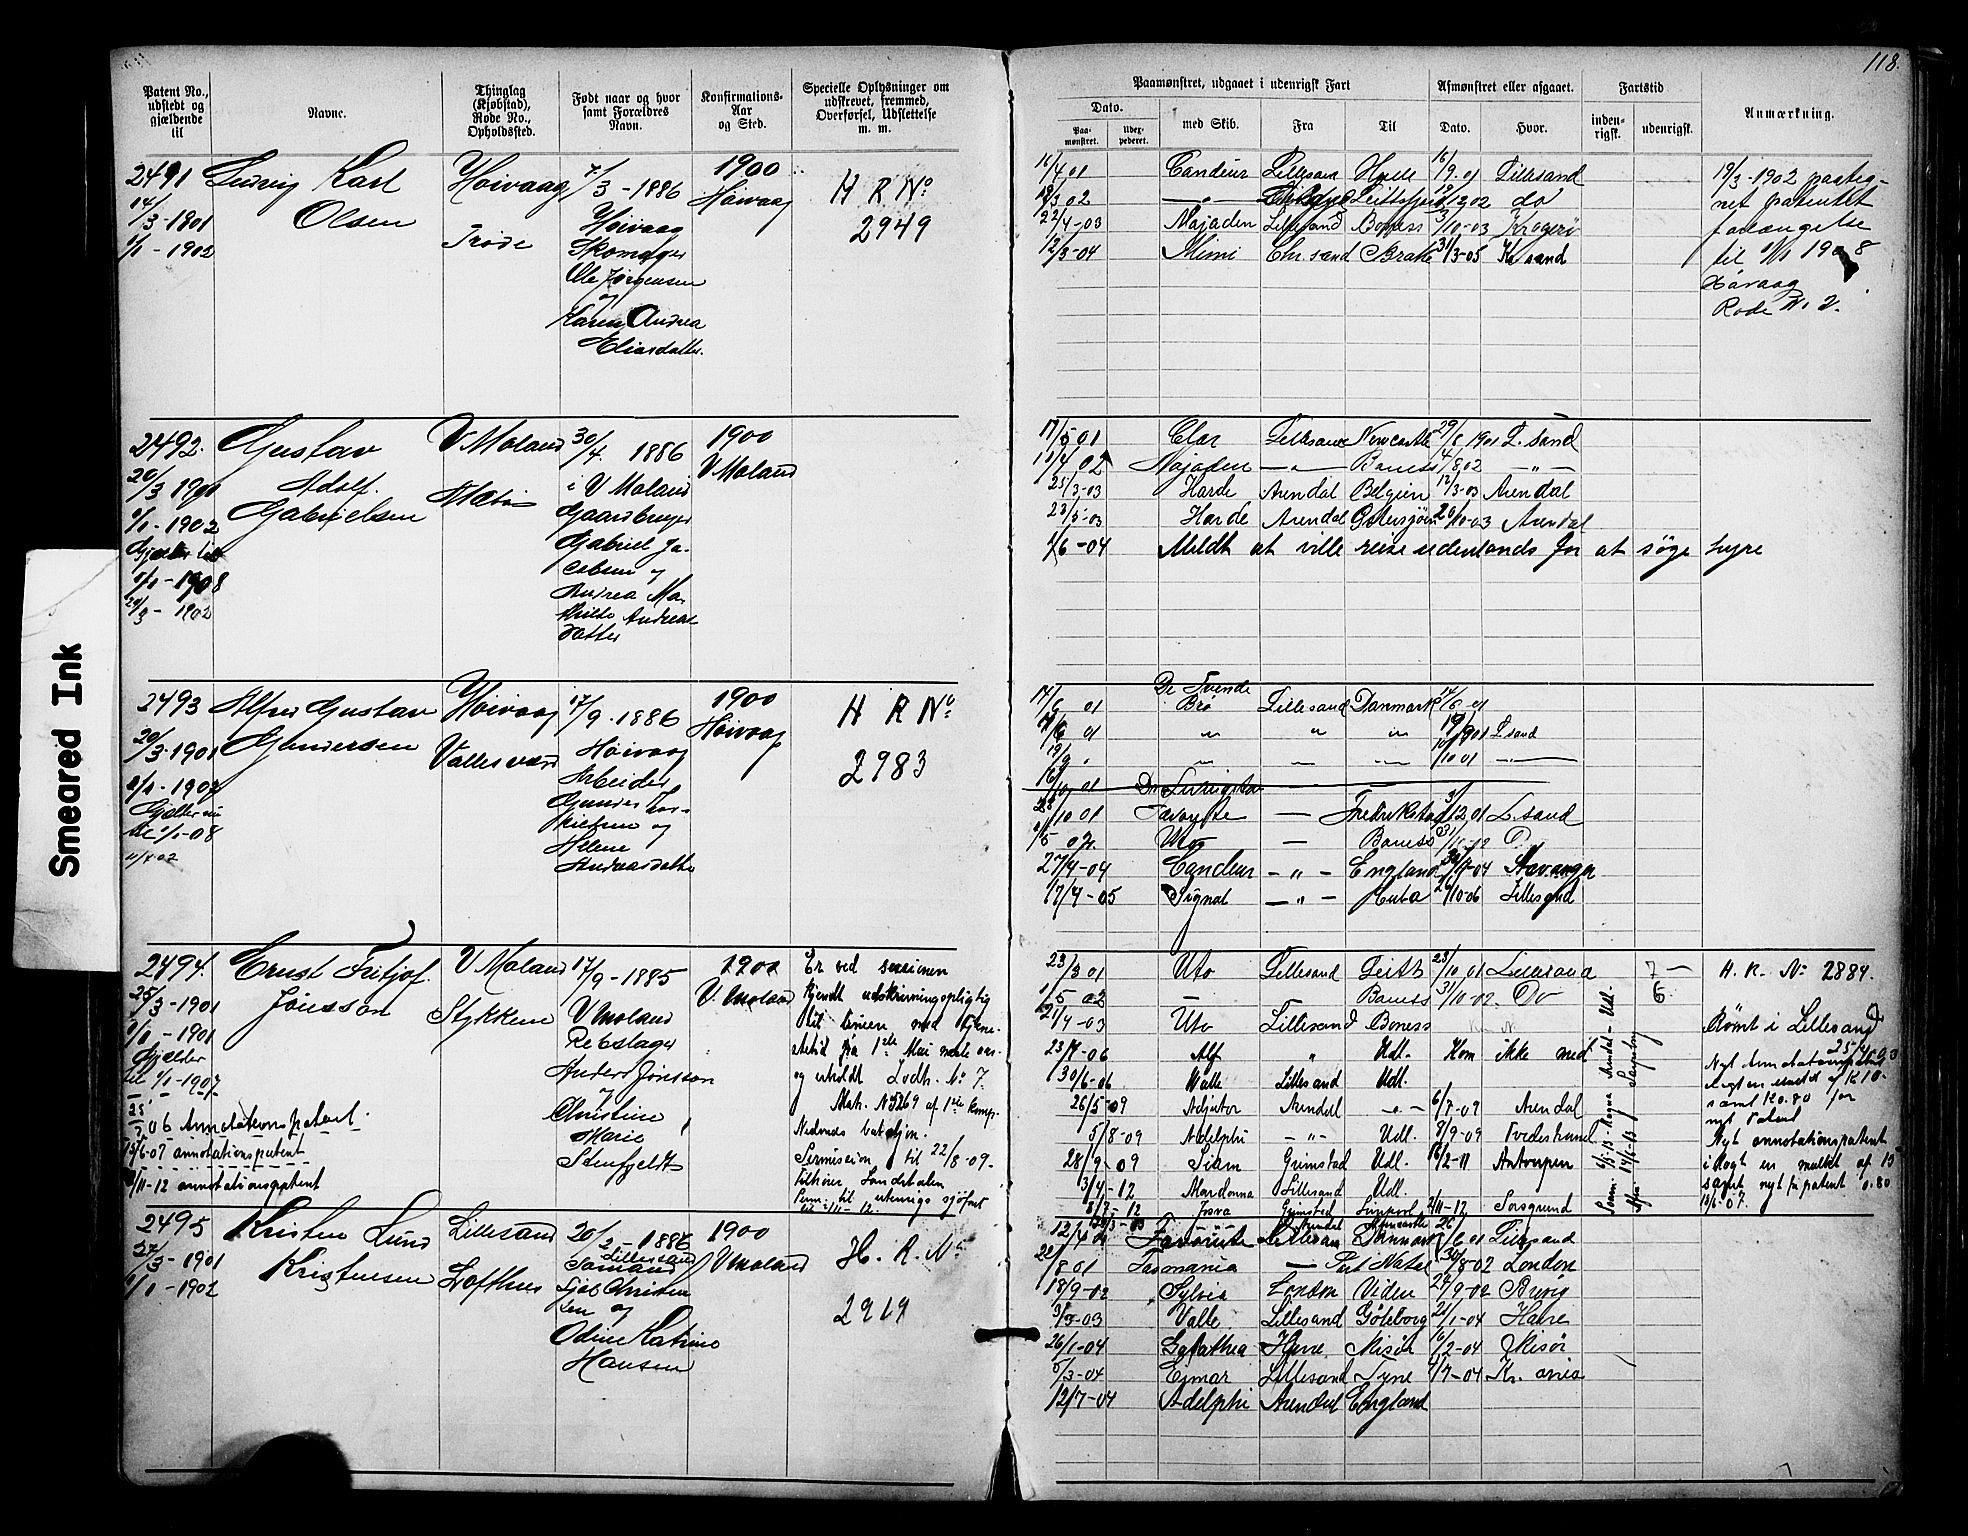 118.
Patent No., udstedt og gjældende til
Navne.
Thinglag (Kjøbstad), Rode No., Opholdssted.
Født naar og hvor samt Forældres Navn.
Konfirmations-Aar og Sted.
Specielle Oplysninger om udskrevet, fremmed, Overførsel, Udslettelse m. m.
Paamønstret, udgaaet i udenrigsk Fart
Afmønstret eller afgaaet.
Fartstid
Anmærkning.
Dato.
Paa-mønstret.
Udex-pederet.
med Skib.
Fra
Til
Dato.
Hvor.
inden-rigsk.
udenrigsk.
2491
14/3-1901
1/1-1902
Ludvig Karl
Olsen
Høivaag
Trøde
7/3-1886
Høivaag
Skomager
Ole Jørgensen
og
Karen Andrea
Eliasdatter.
1900
Høivaag
H R No
2949
16/4 01 Candeur Lillesand Hull 16/9.01 Lillesand
Leith do
22/4-03 Najaden Lillesand Boness 3/10-03 Kragerø
12/3-04 Mimi Chr.sand Brake 31/3-05 Kr sand
19/3-1902 paateg-
net patentet
forlængelse
til 1/1 1908
Høvaag
Rode No 2.
2492.
20/3 1901
1/1-1902
Gjælder til
1/1-1908
1902
Gustav
Adolf.
Gabrielsen
V. Moland
30/4. 1886
i V Moland
Gaardbruger
Gabriel Ja-
cobsen og
Andrea Ma-
thilde Andreas
datter
1900
V Moland
17/5 01 Clar Lillesand Newcastle 1901 L. sand
02 Najaden Boness 4/8 02
25/3-03 Harde Arendal Belgien 12/3-03 Arendal
23/5-03 Harde Arendal Østersjøen 20/10-03 Arendal
1/6-04 Meldt at ville reise udenlands for at søge hyre
2493
20/3-1901
1/1-1907
Gjælder nu
til 1/1-08
Alfred Gustav
Gundersen
Høivaag
Vallesværd
17/9-1886
Høivaag
Arbeider
Gunder Tor-
kildsen og
Helene
Andreasdatter
1900
Høivaag
H R No
2983
14/6 01 De Tvende Brø Lillesand Danmark 14/6 01
01 19/9 01 L sand
10/10 01
01
10 01 Favorite Fredrikstad 3/12.01 L. sand
5 02. Uto Boness
27/4-04 Candeur England 04 Stavanger
17/4-05 Signal 10-06 Lillesand
2494.
25/3-1901
1/1-1901
Gjælder
til 1/1-1907
06 Annotationspatent.
6-07 annotationspatent
11-12 annotationspatent
Ernst Fritjof.
Jönsson
V Moland
Stykkene
17/9-1885
V Moland
Rebslager
Anders Jönsson
og
Christine
Marie
Stenfjeldt
1900
V. Moland
Er ved sessionen
kjendt udskrivningspligtig
til linien med tjene-
stetid fra 1ste Mai næste aar
og erholdt Lodtr. No 7.
Mat. N 5269 af 1ste komp.
Nedenes bataljon.
Permission til 22/8-09.
Tilhører Landetalen
23/3 01 Uto Lillesand Leith 23/10.01 Lillesand 7
1/5 02 Boness 31/10-02. Do 6
21/4-03 Uto Lillesand Boness
23/4-06 Alf " Udl. Kom ikke med
30/6-06 Valle Lillesand Udl.
26/5-09 Adjutor Arendal 6/7-09 Arendal
5/8-09 Adelphi Udl. 8/9-09 Tvedestrand
28/9-09 Siam Grimstad Udl. 16/2-11 Antwerpen
3/4-12 Mardonna Lillesand Udl.
8/7-12 Josva Grimstad Liverpool 2/11-12 Porsgrund
H. R. No 2884.
Rømt i Lillesand
Nyt Annotationspatent
samt K 0.80 for
nyt Patent
Nyt annotationspatent
i dag en mulkt af 15
samt nyt patent 0.80
07.
2495
27/3-1901
1/1-1902
Kristen Lund
Kristensen
Lillesand
Lofthus
20/2-1886
Lillesand
Christen
sen og
Odine Katrine
Hansen
1900
V Moland
H. R. No
2919
Favorite Lillesand Danmark 26/6 01 Lillesand
22/8 01 Tasmania Port Natal 30/8 02 London
18/9-02 Sylvia London Viden 24/9-02 Brevig
3/3-03 Valle Lillesand Göteborg 21/1-04 Havre
26/1-04 Galathea Havre Risør 16/2-04 Risør
5/3-04 Ejnar Lillesand Tyne 4/7-04 Kr. ania
12/7-04 Adelphi Arendal England
Smeared Ink